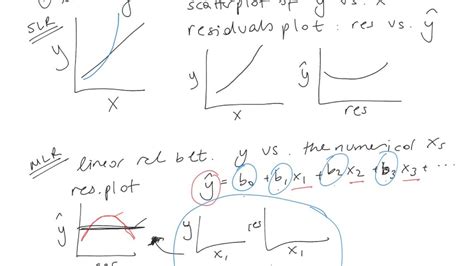 scatterplot of y vs. x
SLR
residuals plot : res vs. ŷ
y
x
y
x
ŷ
res
MLR
linear rel bet. y vs. the numerical xs
res.plot
ŷ = b0 + b1 x1 + b2 x2 + b3 x3 + ...
ŷ
x1
res
x1